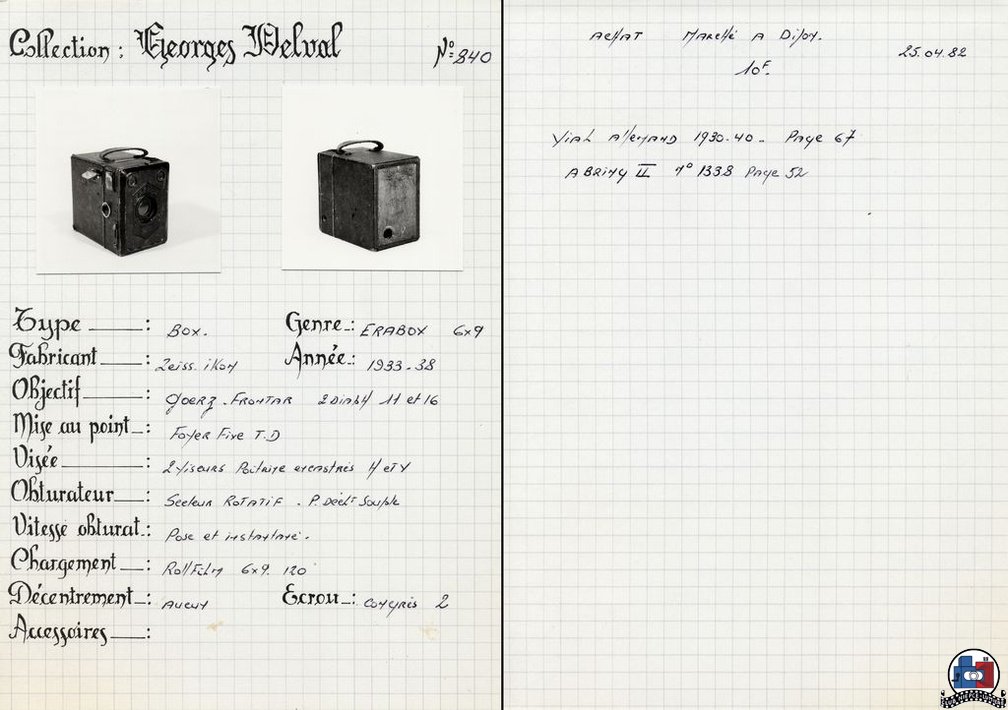 Collection : Georges Delval
N° 840
Type : Box.
Genre : ERABOX 6x9
Fabricant : Zeiss. iKon
Année : 1933-38
Objectif : Goerz - Frontar 2 Diaph 11 et 16
Mise au point : Foyer Fixe T.D
Visée : 2 Viseurs Poitrine encastrés H et V
Obturateur : Secteur ROTATIF . P. Déclt Souple
Vitesse obturat. : Pose et instantané.
Chargement : RollFilm 6x9. 120
Décentrement : Aucun
Ecrou : Congrès 2
Accessoires :
ACHAT Marché A Dijon.
25.04.82
10F.
Vial Allemand 1930-40.. Page 67
ABRING II n° 1338 Page 52